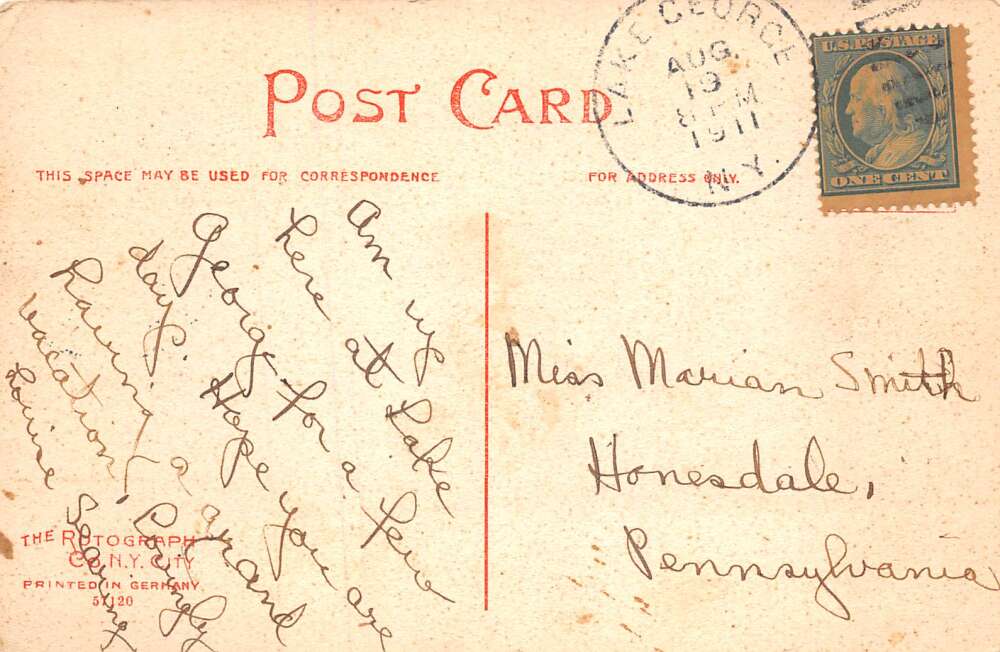 POST CARD
THIS SPACE MAY BE USED FOR CORRESPONDENCE
FOR ADDRESS ONLY.
LAKE GEORGE
AUG
19
8 PM
1911
N.Y.
U.S. POSTAGE
ONE CENT
Am up
here at Lake
George for a few
days. Hope you are
having a grand
vacation, Lovingly
Louise
Miss Marian Smith
Honesdale,
Pennsylvania
THE ROTOGRAPH
CO. N.Y. CITY
PRINTED IN GERMANY
57120